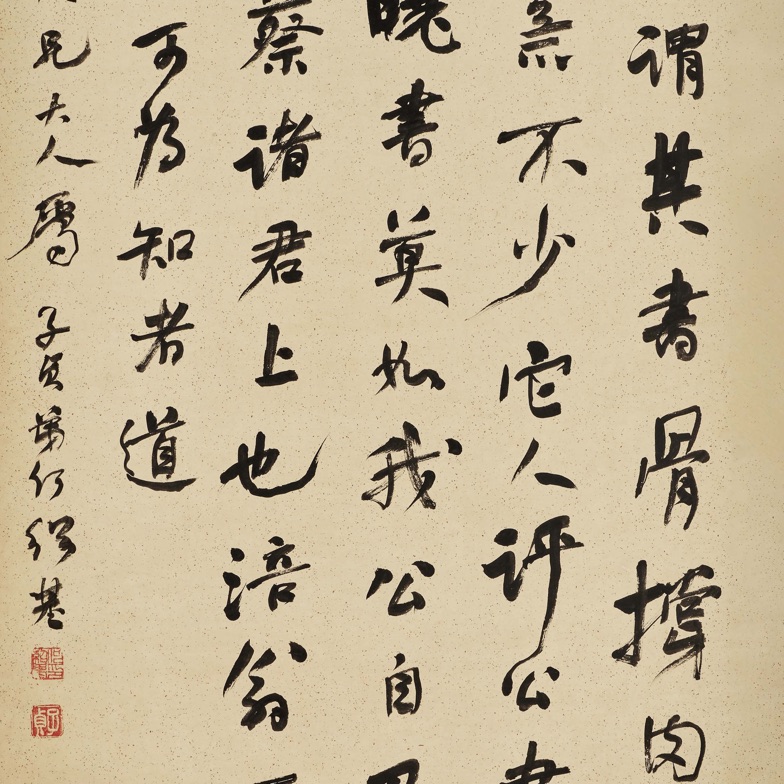 謂其書骨撐肉
無不少它人評公書
曉書莫如我公自
蔡諸君上也涪翁
可為知者道
兄大人屬 子貞弟何紹基
子貞